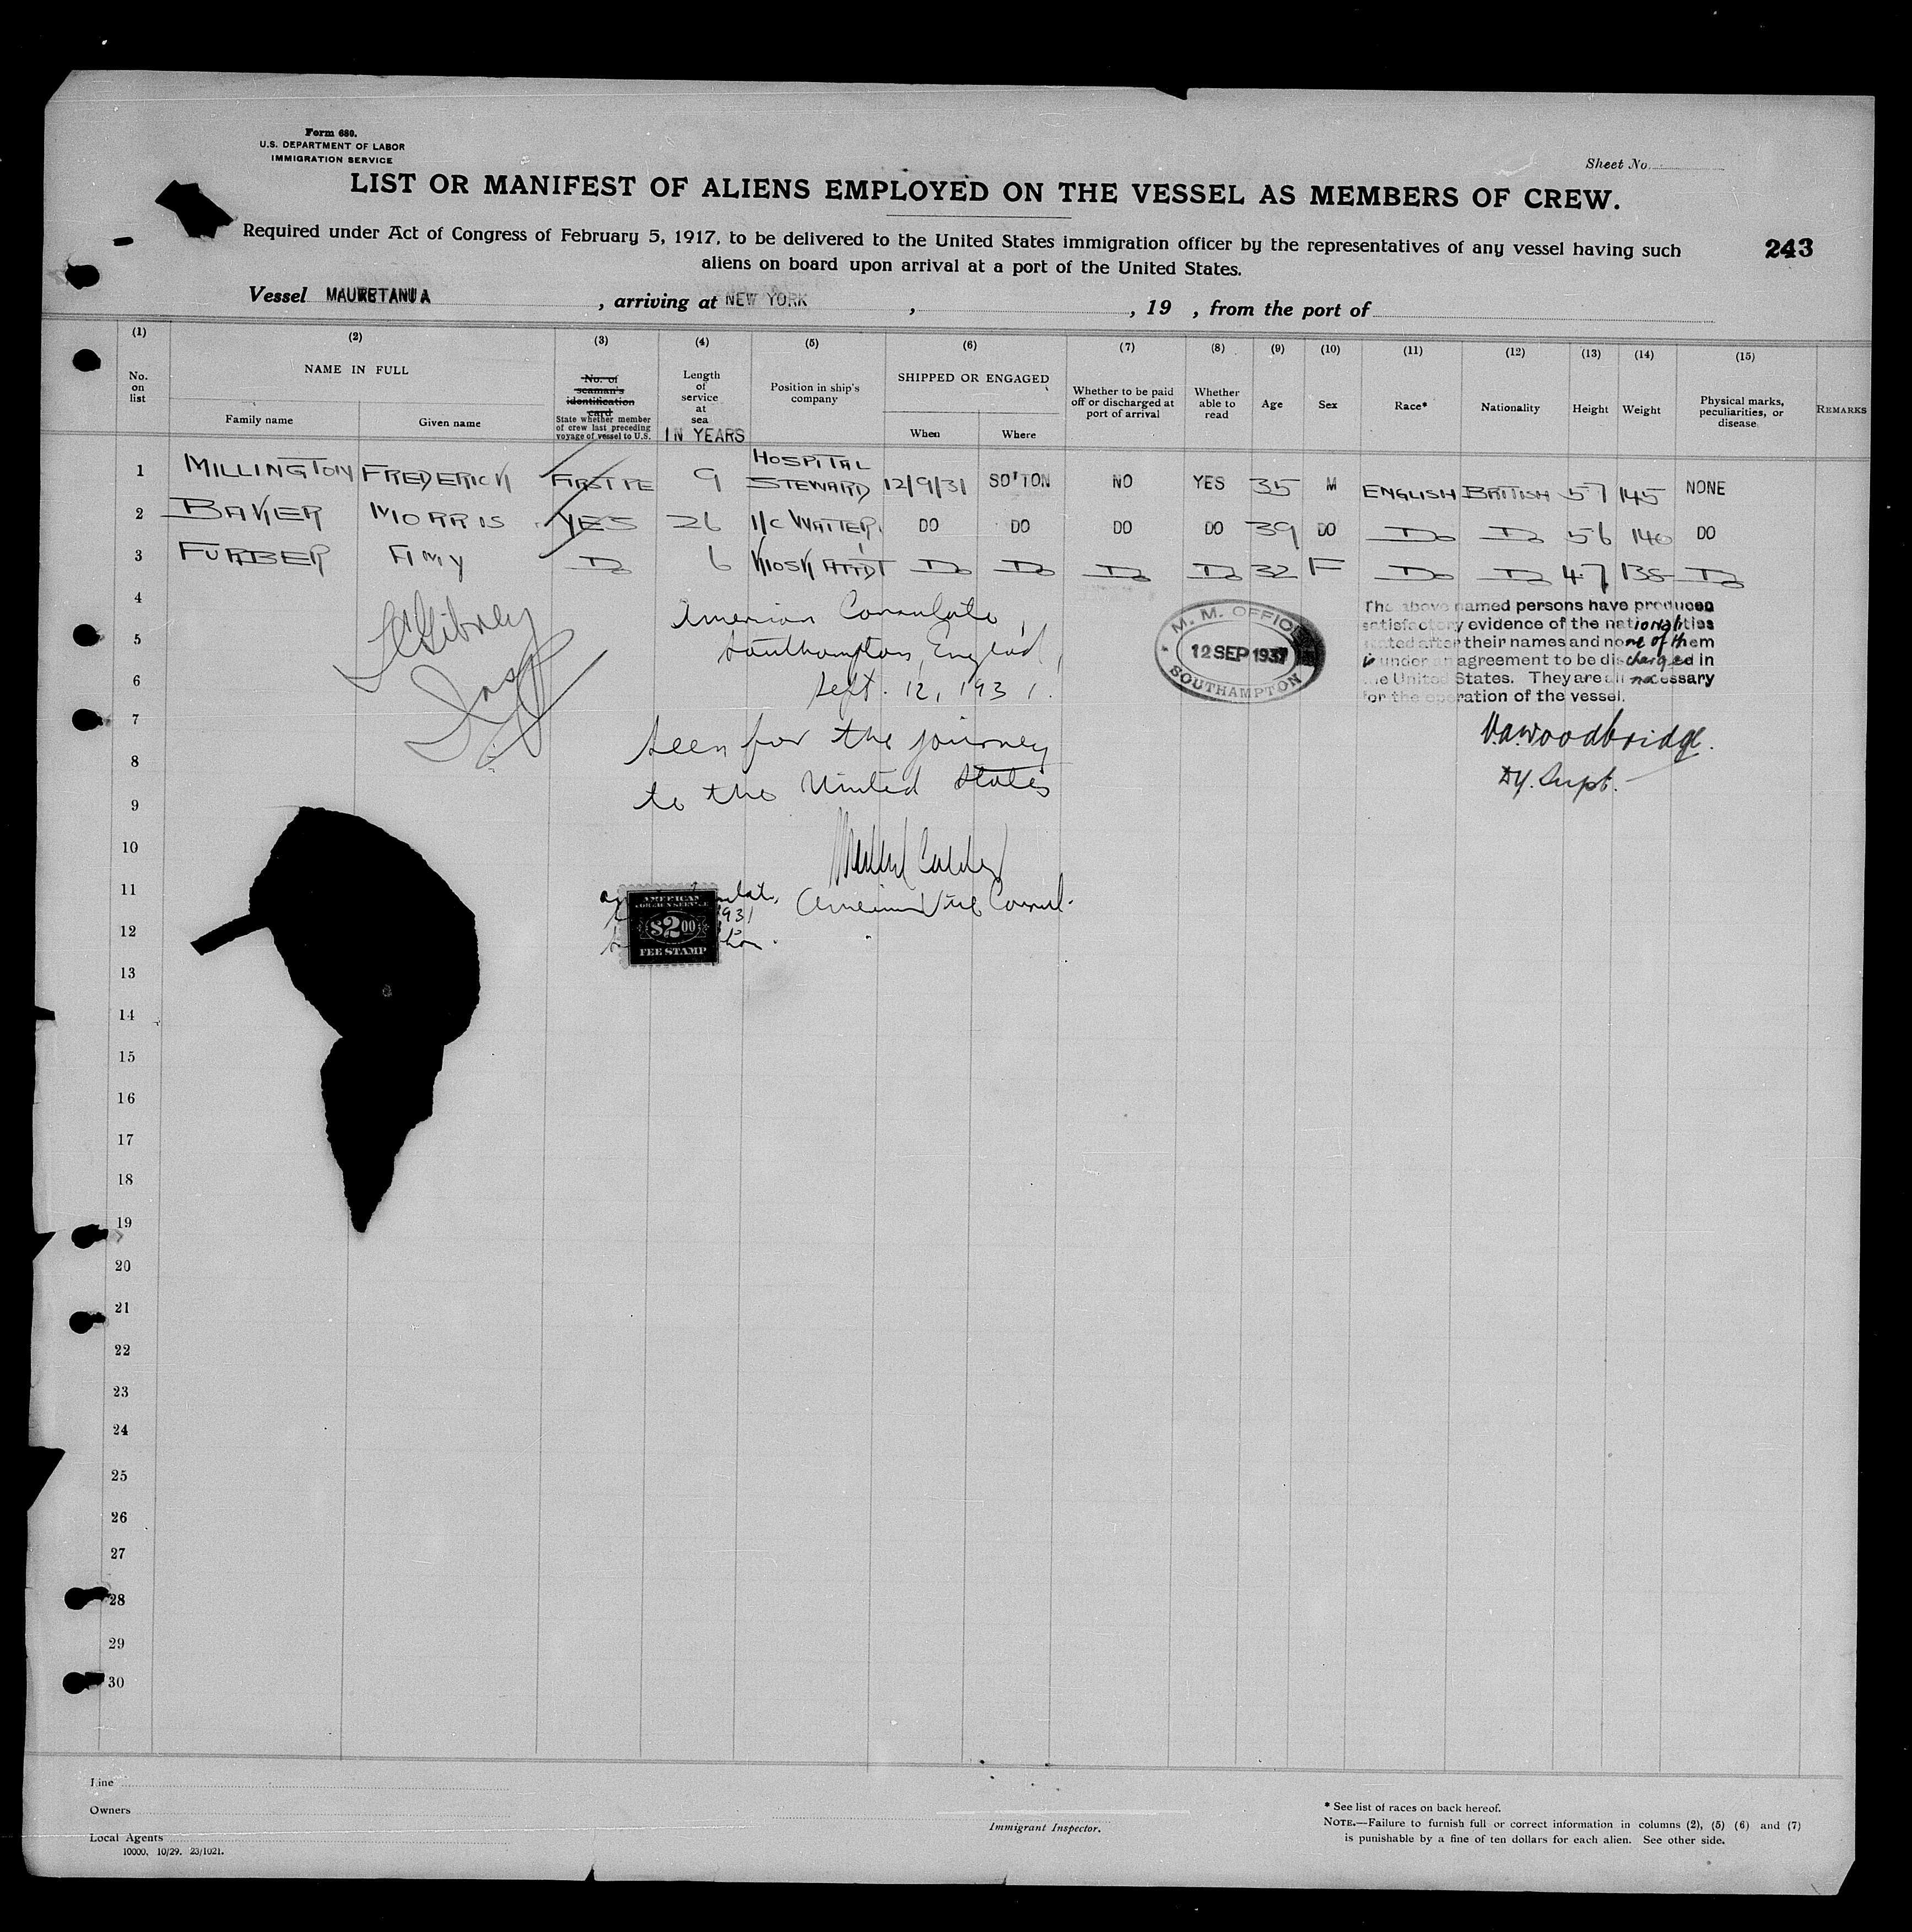 Form 680.
U.S. DEPARTMENT OF LABOR
IMMIGRATION SERVICE
Sheet No.
LIST OR MANIFEST OF ALIENS EMPLOYED ON THE VESSEL AS MEMBERS OF CREW.
Required under Act of Congress of February 5, 1917, to be delivered to the United States immigration officer by the representatives of any vessel having such
aliens on board upon arrival at a port of the United States.
243
Vessel MAURETANIA, arriving at NEW YORK, , 19 , from the port of
(1) (2) (3) (4) (5) (6) (7) (8) (9) (10) (11) (12) (13) (14) (15)
No. on list
NAME IN FULL
Family name
Given name
No. of seaman's identification card
State whether member of crew last preceding voyage of vessel to U.S.
Length of service at sea
IN YEARS
Position in ship's company
SHIPPED OR ENGAGED
When
Where
Whether to be paid off or discharged at port of arrival
Whether able to read
Age
Sex
Race*
Nationality
Height
Weight
Physical marks, peculiarities, or disease
REMARKS
1 MILLINGTON FREDERICK FIRST PE 9 HOSPITAL STEWARD 12/9/31 SO'TON NO YES 35 M ENGLISH BRITISH 5 7 145 NONE
2 BAKER MORRIS YES 26 1/C WAITER DO DO DO DO 39 DO DO DO 5 6 140 DO
3 FURBER AMY DO 6 KIOSK ATTDT DO DO DO DO 32 F DO DO 4.7 138 DO
4
5
6
7
8
9
10
11
12
13
14
15
16
17
18
19
20
21
22
23
24
25
26
27
28
29
30
American Consulate,
Southampton, England,
Sept. 12, 1931.
Seen for the journey
to the United States
American Vice Consul.
AMERICAN
FOREIGN SERVICE
$2.00
FEE STAMP
M. M. OFFICE
12 SEP 1931
SOUTHAMPTON
The above named persons have produced
satisfactory evidence of the nationalities
stated after their names and none of them
is under an agreement to be discharged in
the United States. They are all necessary
for the operation of the vessel.
V.A. Woodbridge.
Dy. Supt.
Line
Owners
Local Agents
10000, 10/29. 23/1021.
Immigrant Inspector.
* See list of races on back hereof.
NOTE.—Failure to furnish full or correct information in columns (2), (5) (6) and (7)
is punishable by a fine of ten dollars for each alien. See other side.